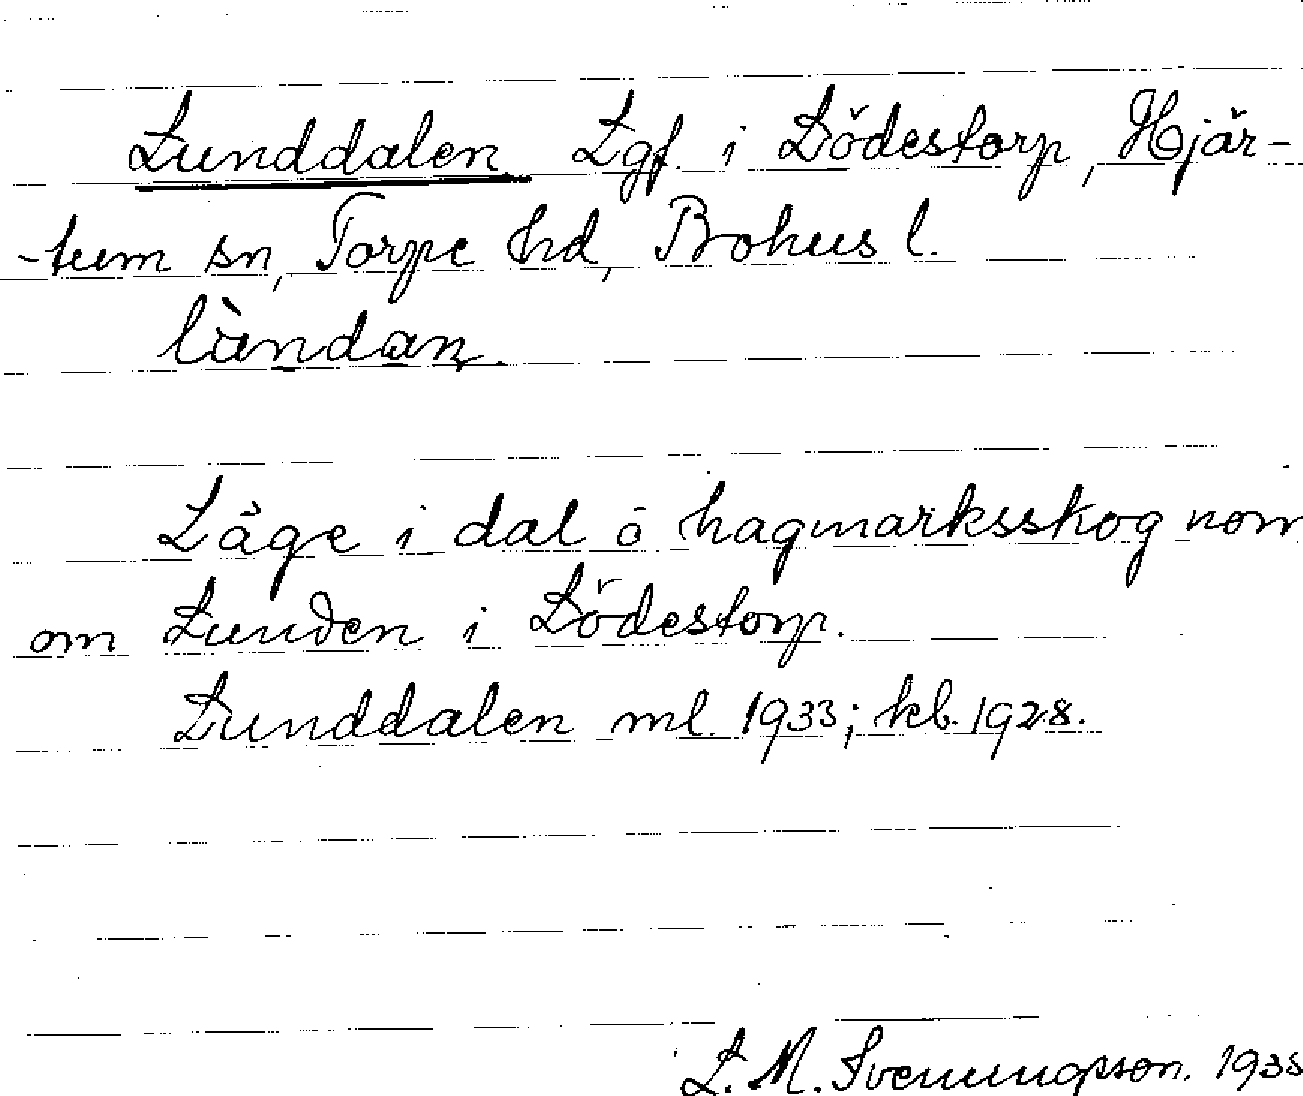 Lunddalen Lgf. i Lödestorp, Hjär-
-tum sn, Torpe hd, Bohus l.
làndan.
Läge i dal o hagmarksskog nom
om Lunden i Lödestorp.
Lunddalen ml. 1933; kb. 1928.
L. M. Svenungsson. 1935